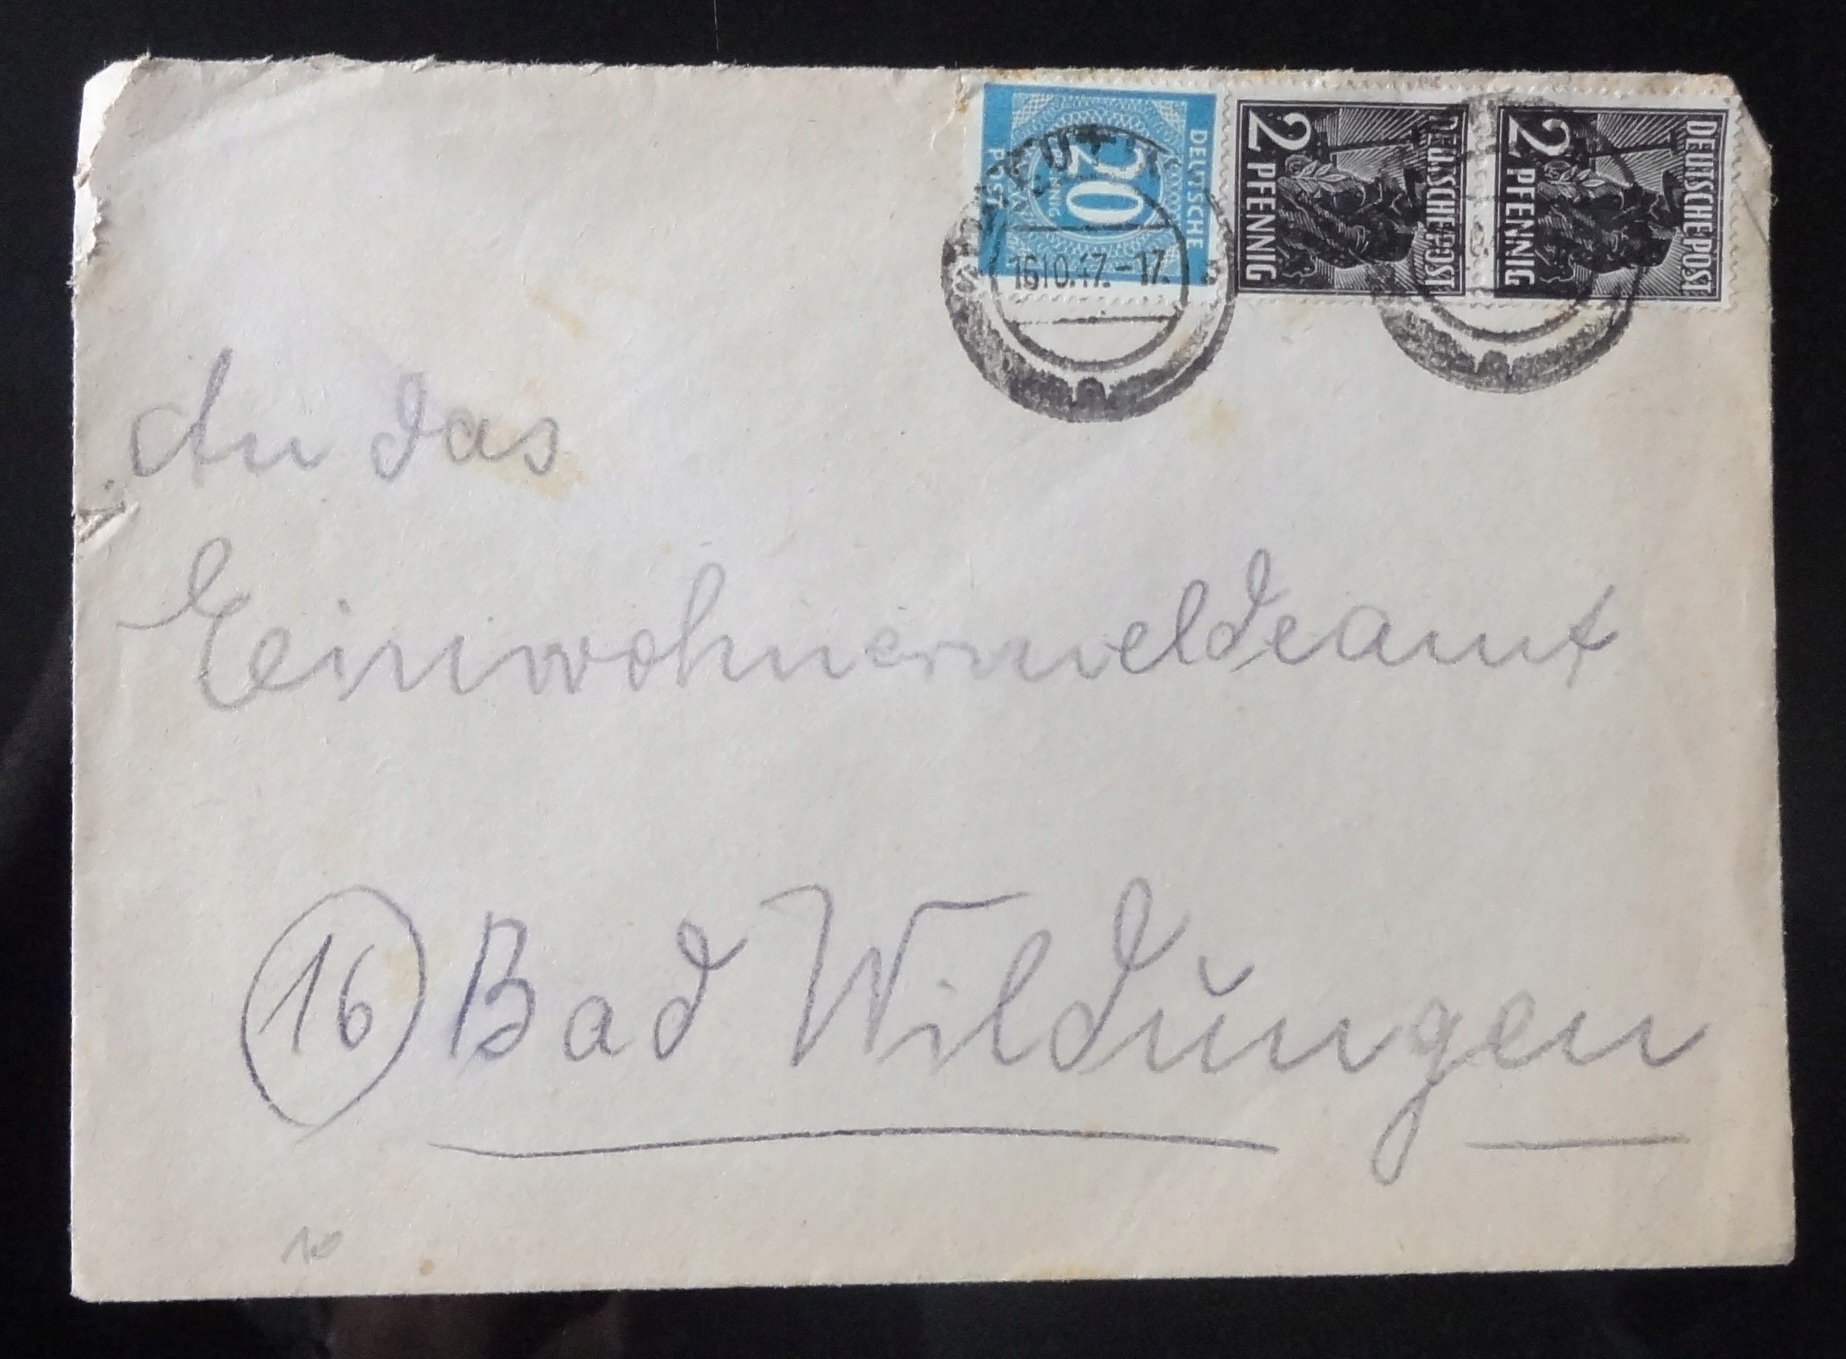 DEUTSCHE
POST
20
PFENNIG
DEUTSCHE POST
2 PFENNIG
DEUTSCHE POST
2 PFENNIG
16.10.47.-17.
An das
Einwohnermeldeamt
16 Bad Wildungen
10